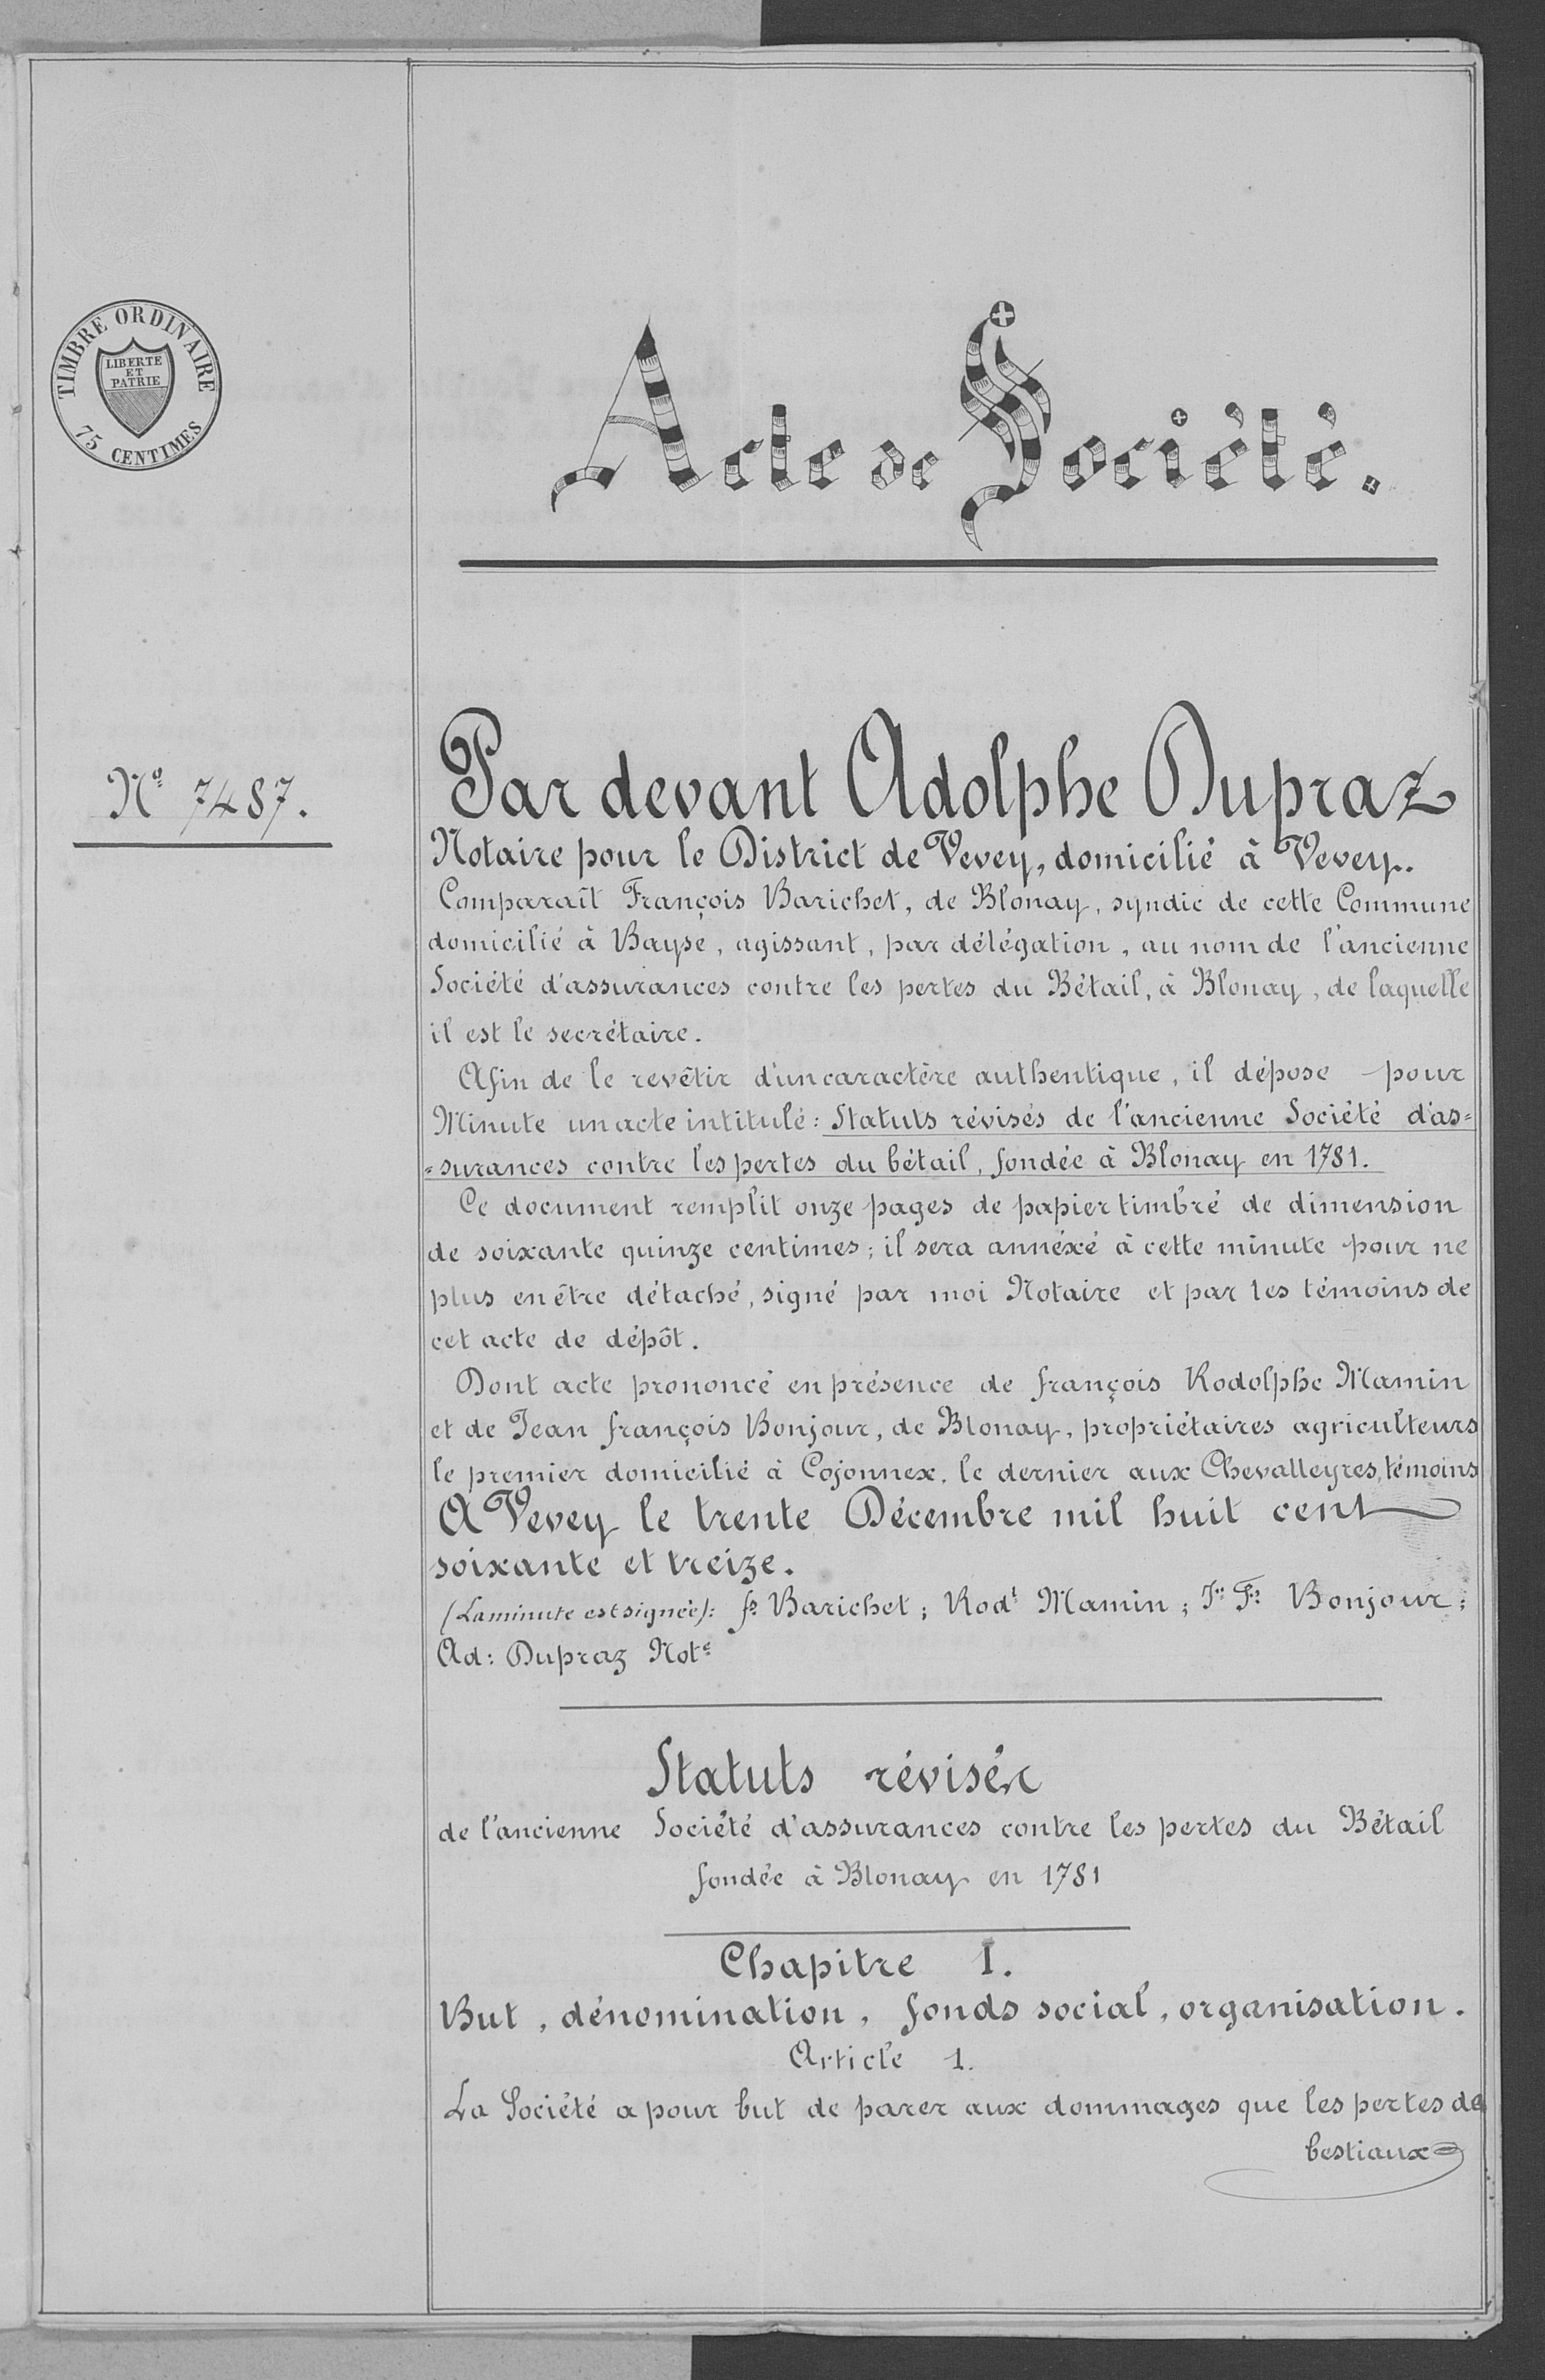 TIMBRE ORDINAIRE
LIBERTE
ET
PATRIE
75 CENTIMES
Acte de Société.
Nº 7487.
Par devant Adolphe Dupraz
Notaire pour le District de Vevey, domicilié à Vevey.
Comparaît François Barichet, de Blonay, syndic de cette Commune
domicilié à Bayse, agissant, par délégation, au nom de l'ancienne
Société d'assurances contre les pertes du Bétail, à Blonay, de laquelle
il est le secrétaire.
Afin de le revêtir d'un caractère authentique, il dépose - pour
Minute un acte intitulé: Statuts révisés de l'ancienne Société d'as=
=surances contre les pertes du bétail, fondée à Blonay en 1781.
Ce document remplit onze pages de papier timbré de dimension
de soixante quinze centimes; il sera annéxé à cette minute pour ne
plus en être détaché, signé par moi Notaire et par les témoins de
cet acte de dépôt.
Dont acte prononcé en présence de françois Rodolphe Mamin
et de Jean françois Bonjour, de Blonay, propriétaires agriculteurs
le premier domicilié à Cojonnex, le dernier aux Chevalleyres, témoins
A Vevey le trente Décembre mil huit cent
soixante et treize.
(La minute est signée): fs Barichet; Rod! Mamin; Jn Fs Bonjour;
Ad: Dupraz Note
Statuts révisés
de l'ancienne Société d'assurances contre les pertes du Bétail
fondée à Blonay en 1781
Chapitre I.
But, dénomination, fonds social, organisation.
Article 1.
La Société a pour but de parer aux dommages que les pertes de
bestiaux